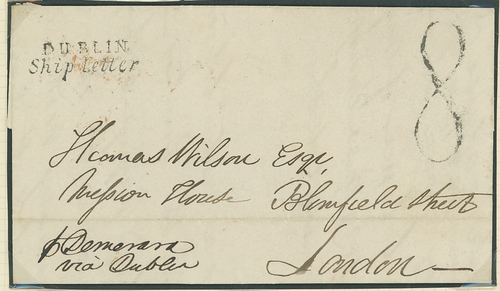 DUBLIN
Ship Letter
8
Thomas Wilson Esqr
Mission House Blomfield Street
London
p Demerara
via Dublin